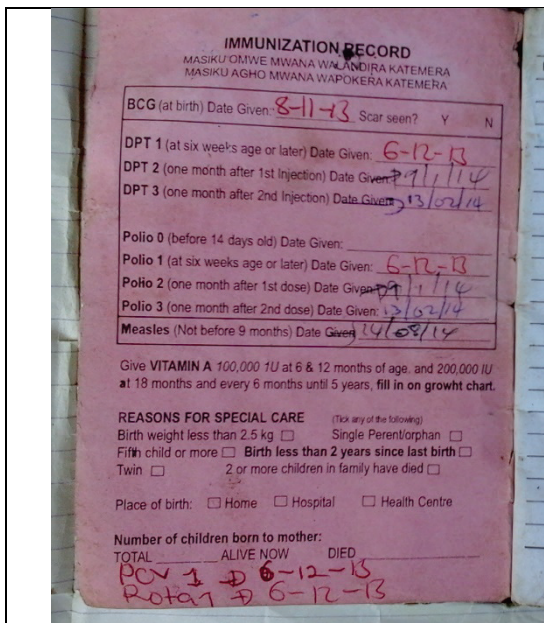 IMMUNIZATION RECORD
MASIKU OMWE MWANA WALANDIRA KATEMERA
MASIKU AGHO MWANA WAPOKERA KATEMERA
BCG (at birth) Date Given: 8-11-13 Scar seen? Y N
DPT 1 (at six weeks age or later) Date Given: 6-12-13
DPT 2 (one month after 1st Injection) Date Given: 9/1/14
DPT 3 (one month after 2nd Injection) Date Given: 13/02/14
Polio 0 (before 14 days old) Date Given:
Polio 1 (at six weeks age or later) Date Given: 6-12-13
Polio 2 (one month after 1st dose) Date Given: 9/1/14
Polio 3 (one month after 2nd dose) Date Given: 13/02/14
Measles (Not before 9 months) Date Given 14/08/14
Give VITAMIN A 100,000 1U at 6 & 12 months of age, and 200,000 IU
at 18 months and every 6 months until 5 years, fill in on growht chart.
REASONS FOR SPECIAL CARE (Tick any of the following)
Birth weight less than 2.5 kg Single Perent/orphan
Fifth child or more Birth less than 2 years since last birth
Twin 2 or more children in family have died
Place of birth: Home Hospital Health Centre
Number of children born to mother:
TOTAL ALIVE NOW DIED
PCV 1 6-12-13
Rota 1 6-12-13